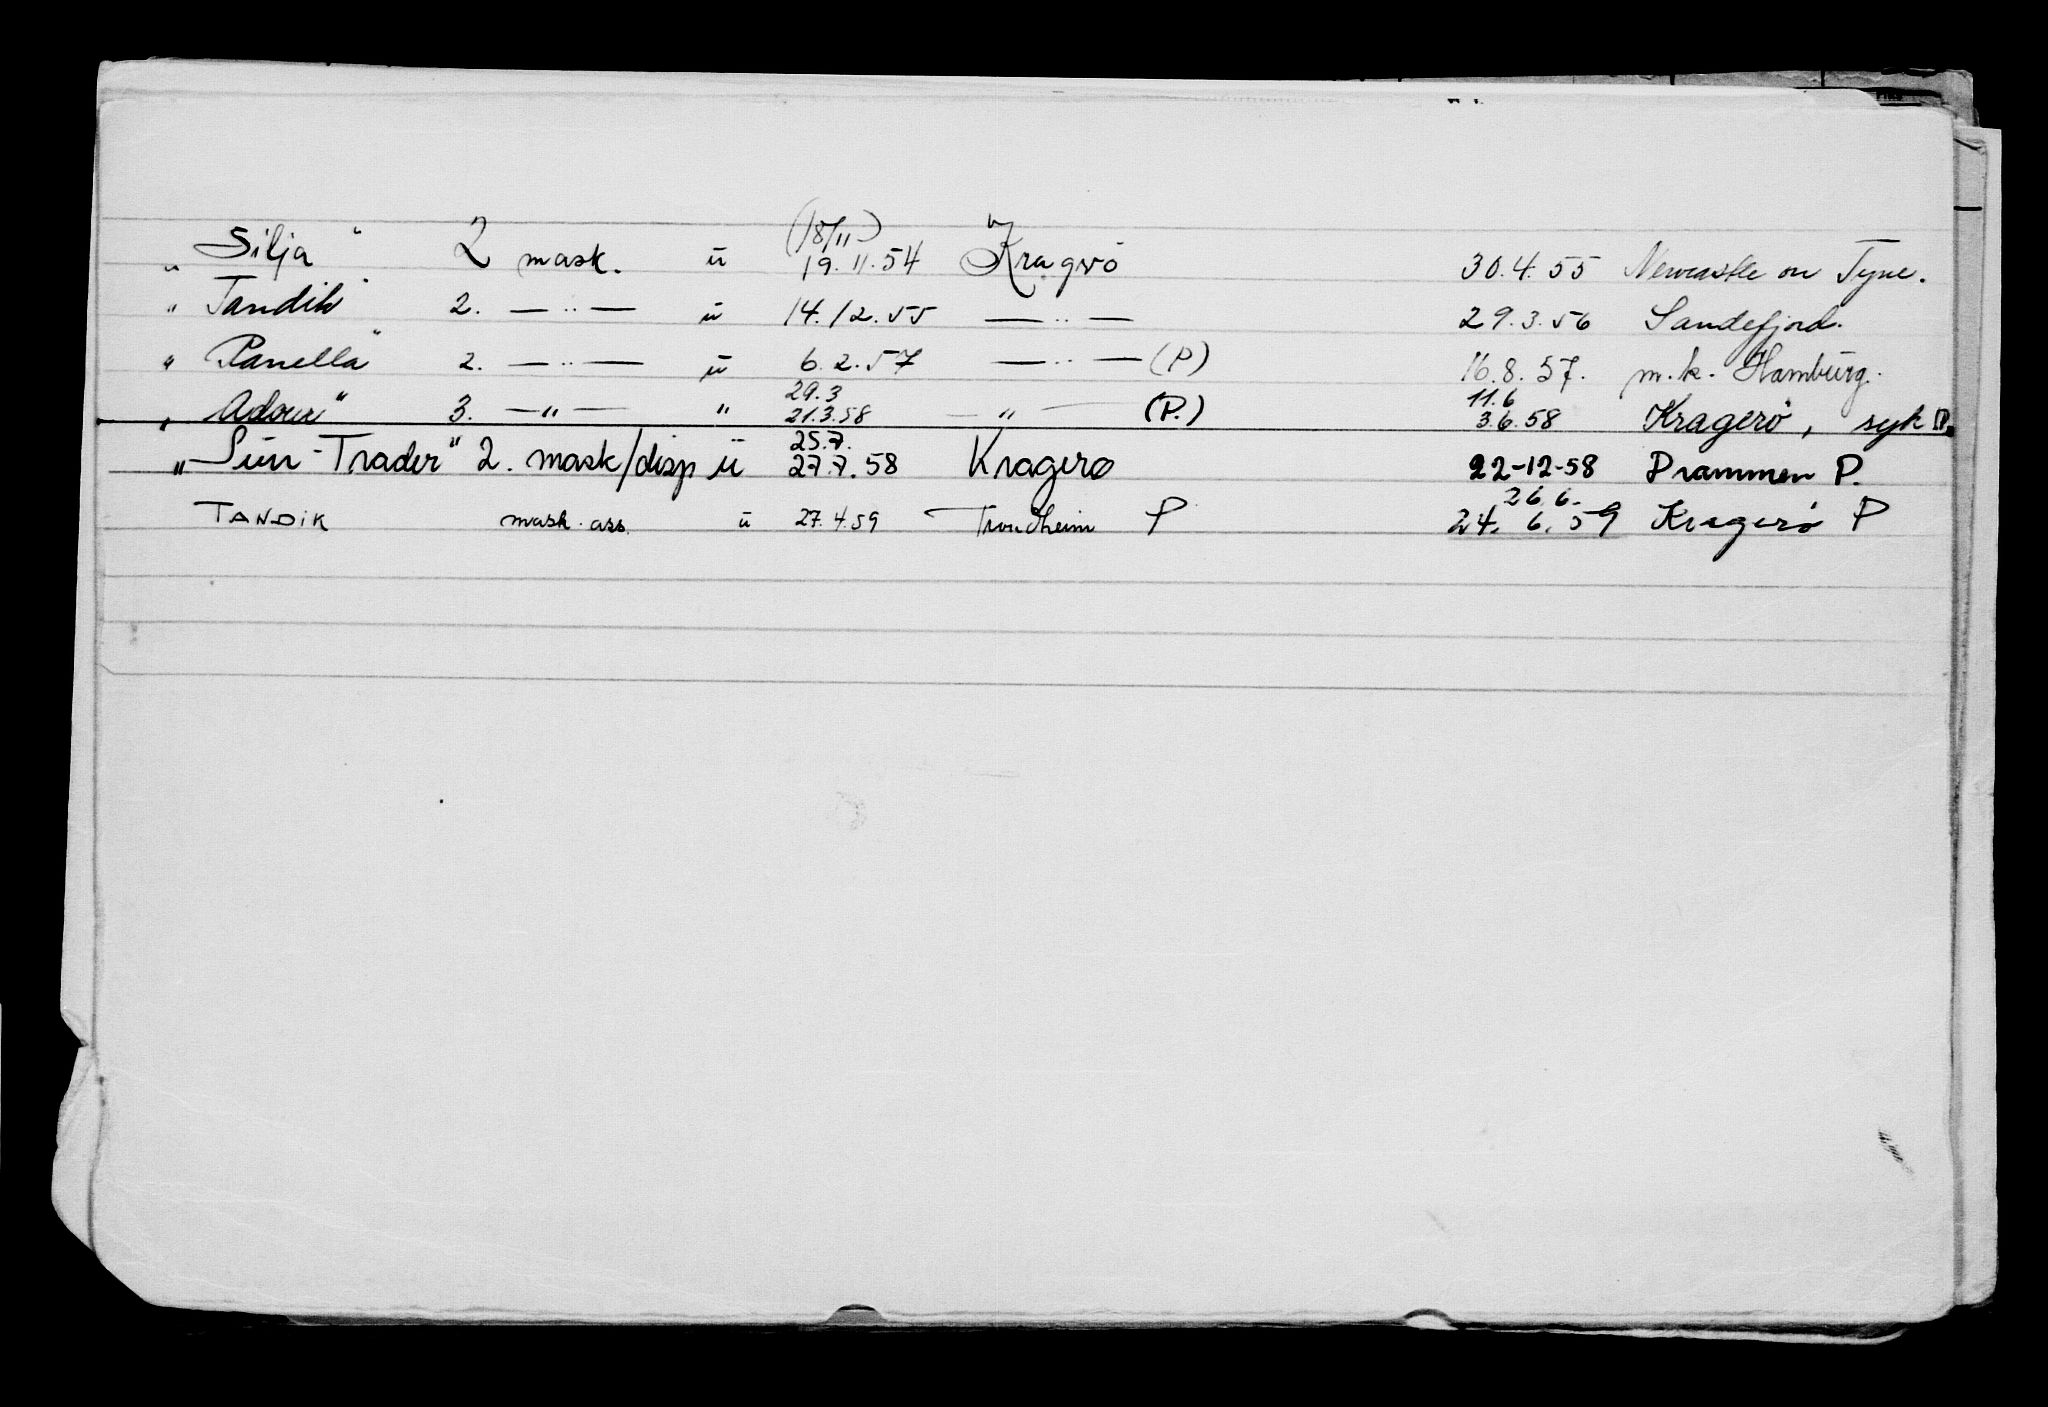 „ Silja “ 2 mask. ü (18/11) 19.11.54 Kragerö 30.4.55 Newcastle on Tyne.
„ Tandik “ 2. — „ — ü 14.12.55 — „ — 29.3.56 Sandefjord.
„ Panella “ 2. — „ — ü 6.2.57 — „ — (P) 16.8.57. m.k. Hamburg.
29.3 11.6
„ Adour “ 3. — „ — „ 21.3.58 — „ — (P.) 3.6.58 Kragerö, syk P.
25.7.
„ Sun-Trader “ 2. mask/disp ü 27.7.58 Kragerø 22-12-58 Drammen P.
26.6.
TANDIK mask. ass. ü 27.4.59 Trondheim P 24.6.59 Kragerø P